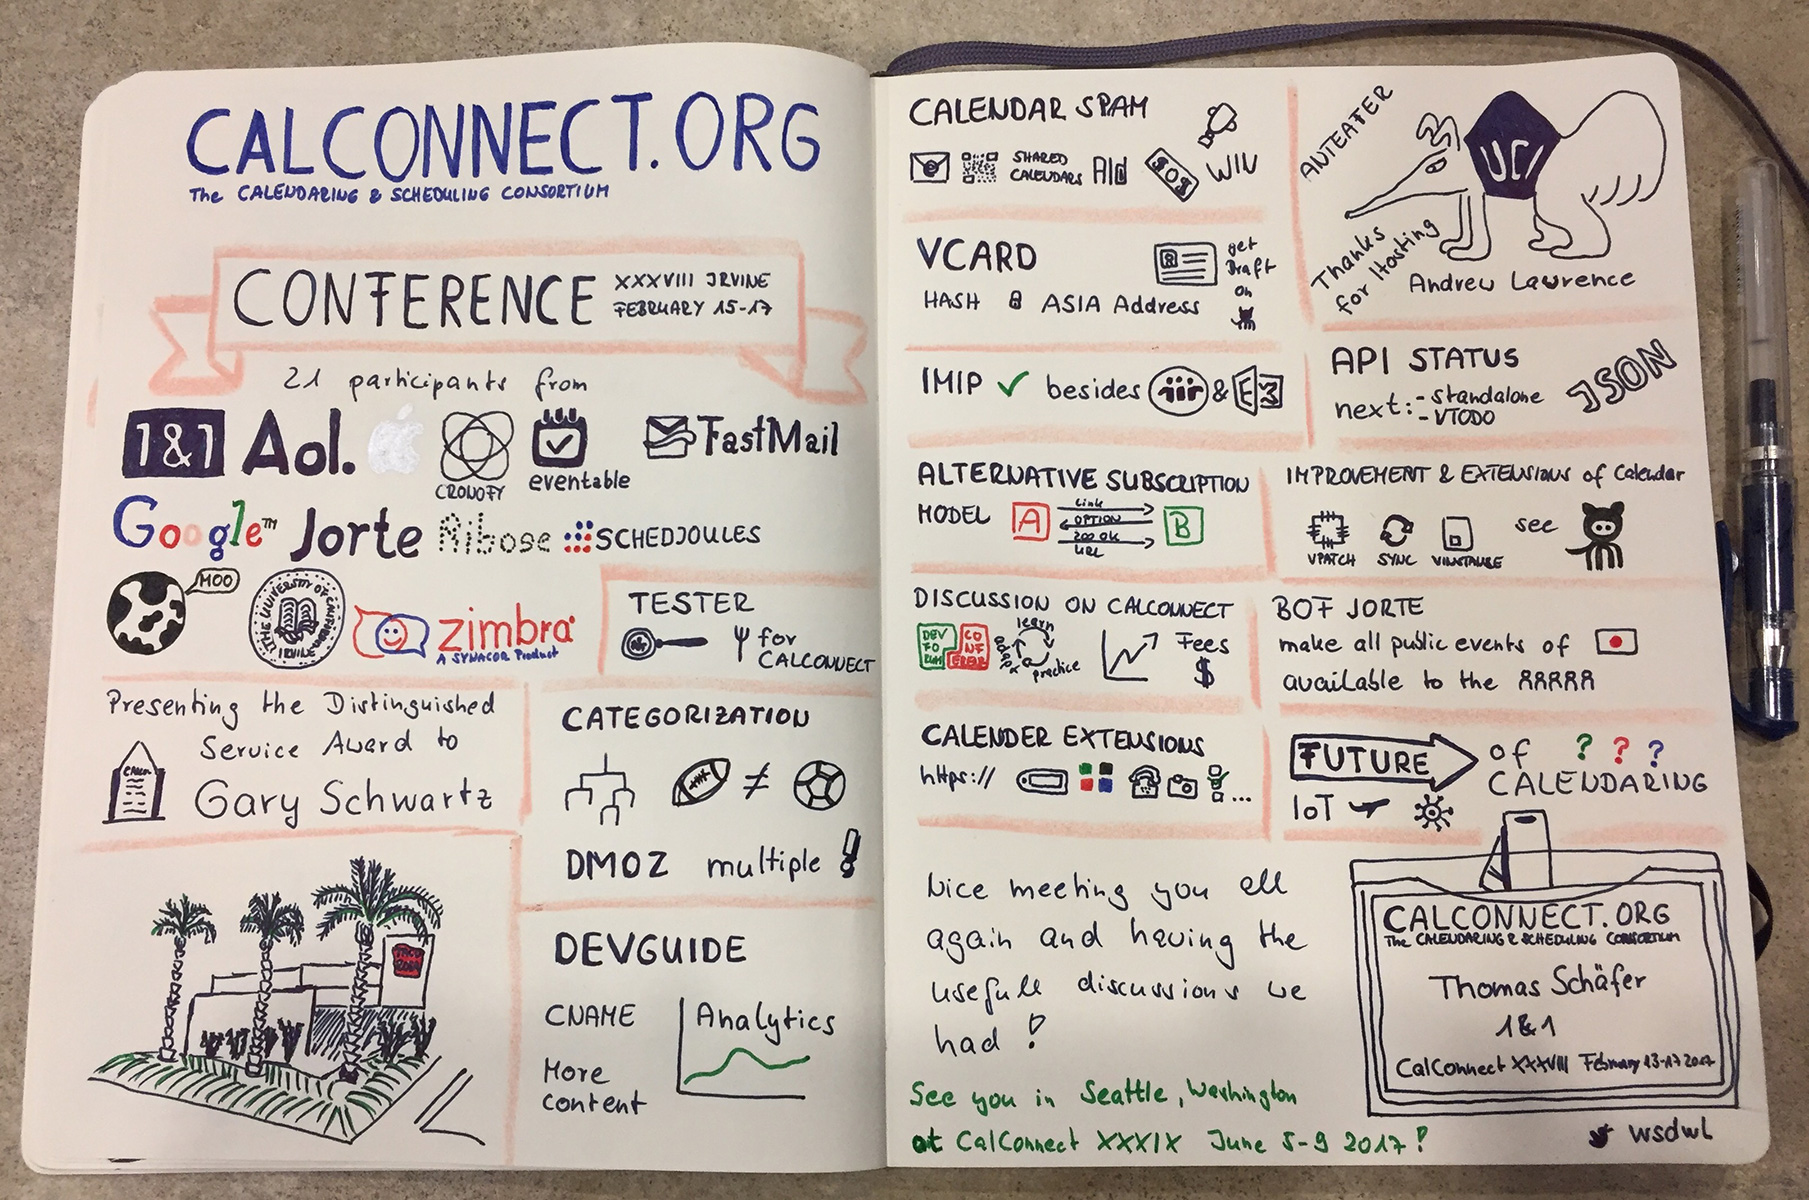 CALCONNECT.ORG
The CALENDARING & SCHEDULING CONSORTIUM
CONFERENCE
XXXVIII IRVINE
FEBRUARY 15-17
21 participants from
1&1 Aol.
CRONOFY
eventable
FastMail
Google™ Jorte Ribose SCHEDJOULES
MOO
THE UNIVERSITY OF CALIFORNIA
IRVINE
zimbra
A SYNACOR Product
TESTER
for
CALCONNECT
Presenting the Distinguished
Service Award to
Gary Schwartz
CATEGORIZATION
≠
DMOZ multiple !
DEVGUIDE
CNAME
Analytics
More
content
CALENDAR SPAM
SHARED
CALENDARS
WIN
VCARD
get
Draft
on
HASH & ASIA Address
IMIP ✓ besides & E
ALTERNATIVE SUBSCRIPTION
MODEL
A
Link
OPTION
200 OK
URL
B
DISCUSSION ON CALCONNECT
DEV
FO
RUM
CO
NF
EREN
learn
adapt
practice
Fees
$
CALENDER EXTENSIONS
https://
...
ANTEATER
UCI
Thanks
for Hosting
Andrew Lawrence
API STATUS
next: - standalone
- VTODO
JSON
IMPROVEMENT & EXTENSIONS of Calendar
VPATCH SYNC
see
BOF JORTE
make all public events of
available to the
FUTURE of ? ? ?
CALENDARING
IoT
Nice meeting you all
again and having the
usefull discussions we
had !
See you in Seattle, Washington
at CalConnect XXXIX June 5-9 2017!
CALCONNECT.ORG
The CALENDARING & SCHEDULING CONSORTIUM
Thomas Schäfer
1&1
CalConnect XXXVIII February 13-17 2017
wsdwl